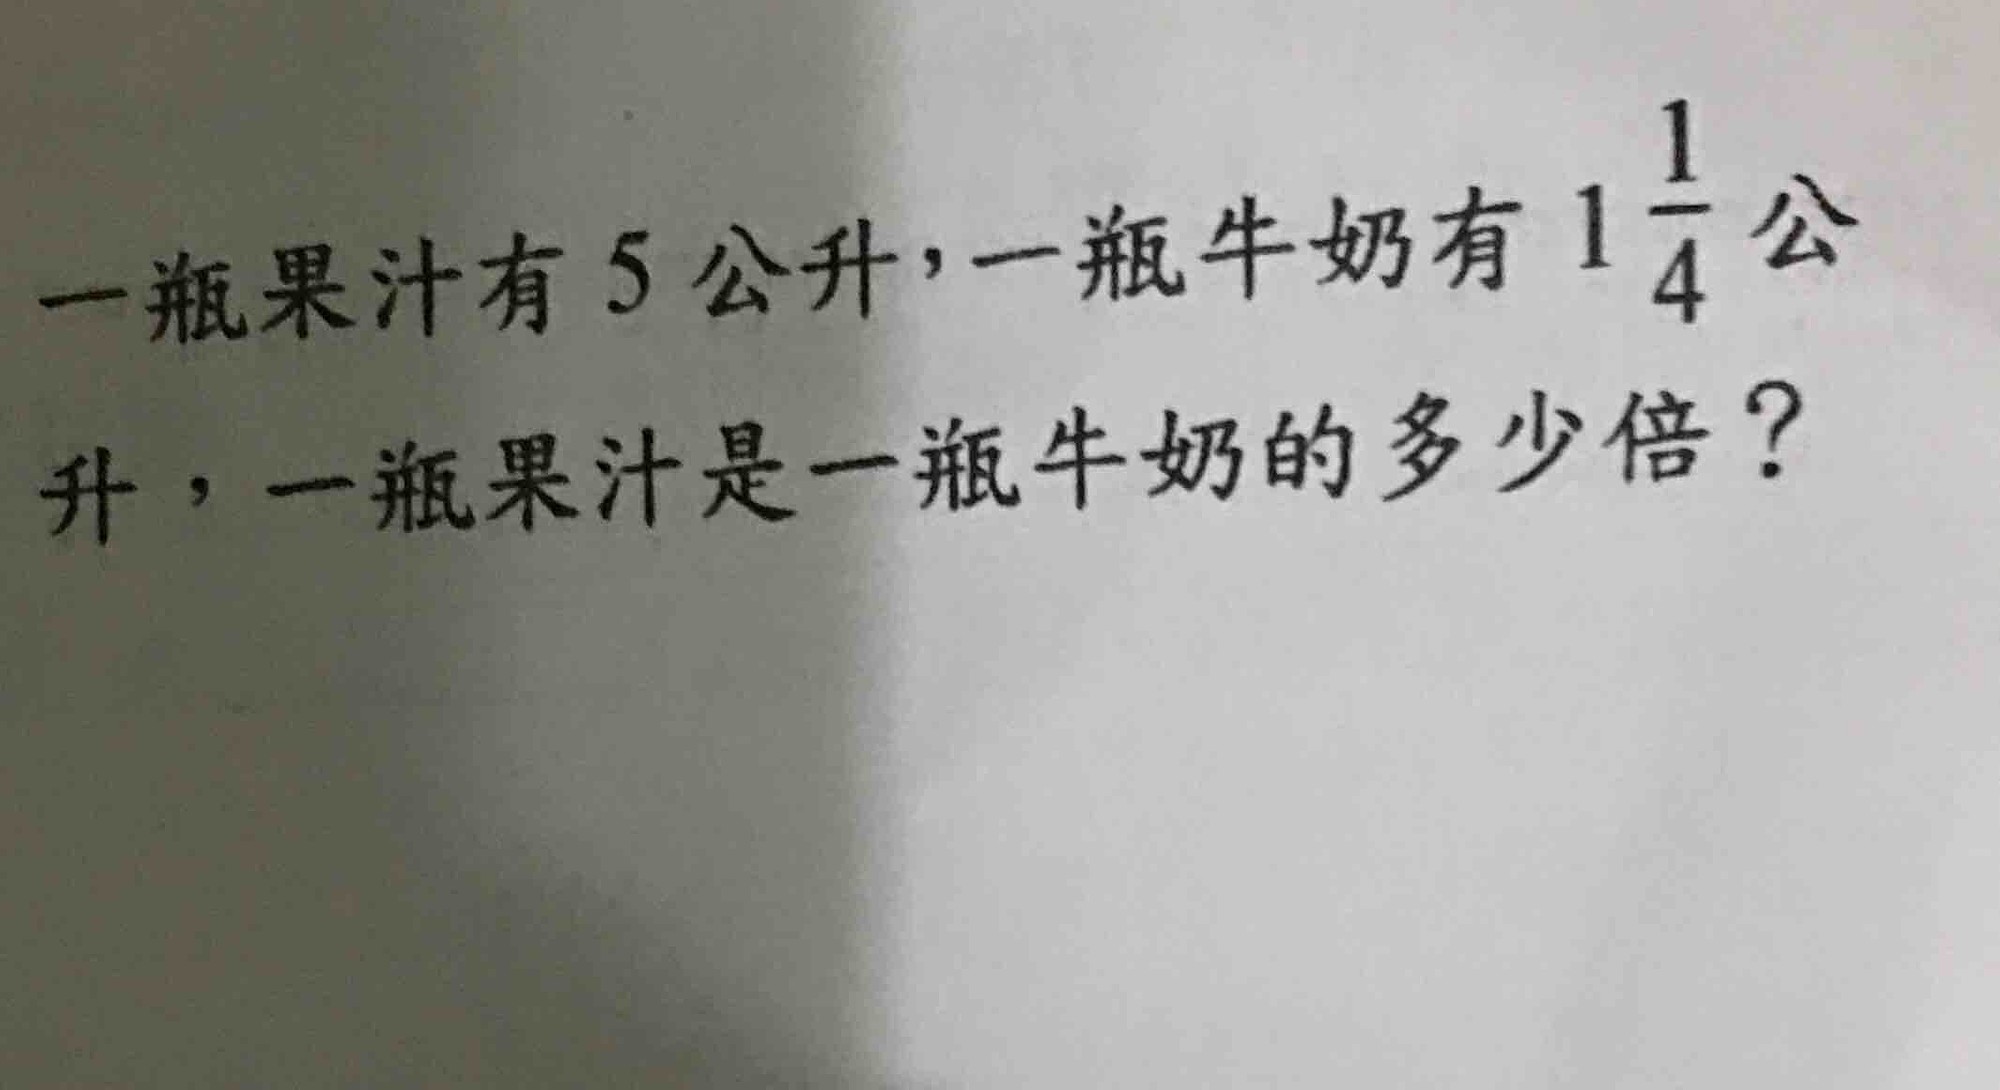 一瓶果汁有 5 公升，一瓶牛奶有 1 1/4 公
升，一瓶果汁是一瓶牛奶的多少倍？